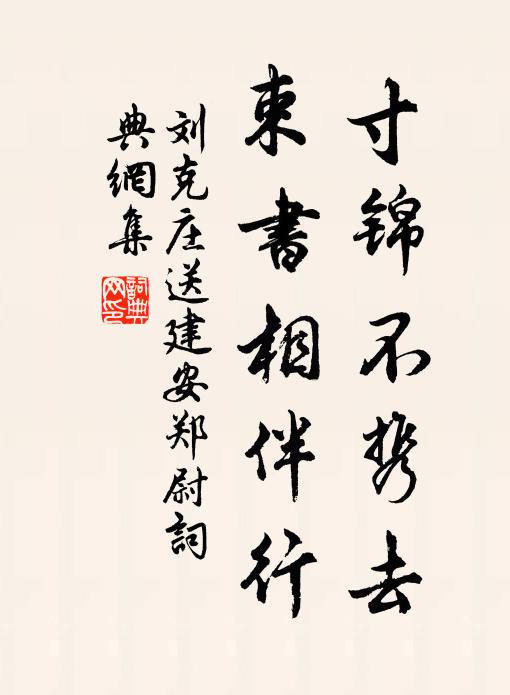 寸锦不携去
束書相伴行
刘克庄送建安郑尉詞
典網集
詞典网印